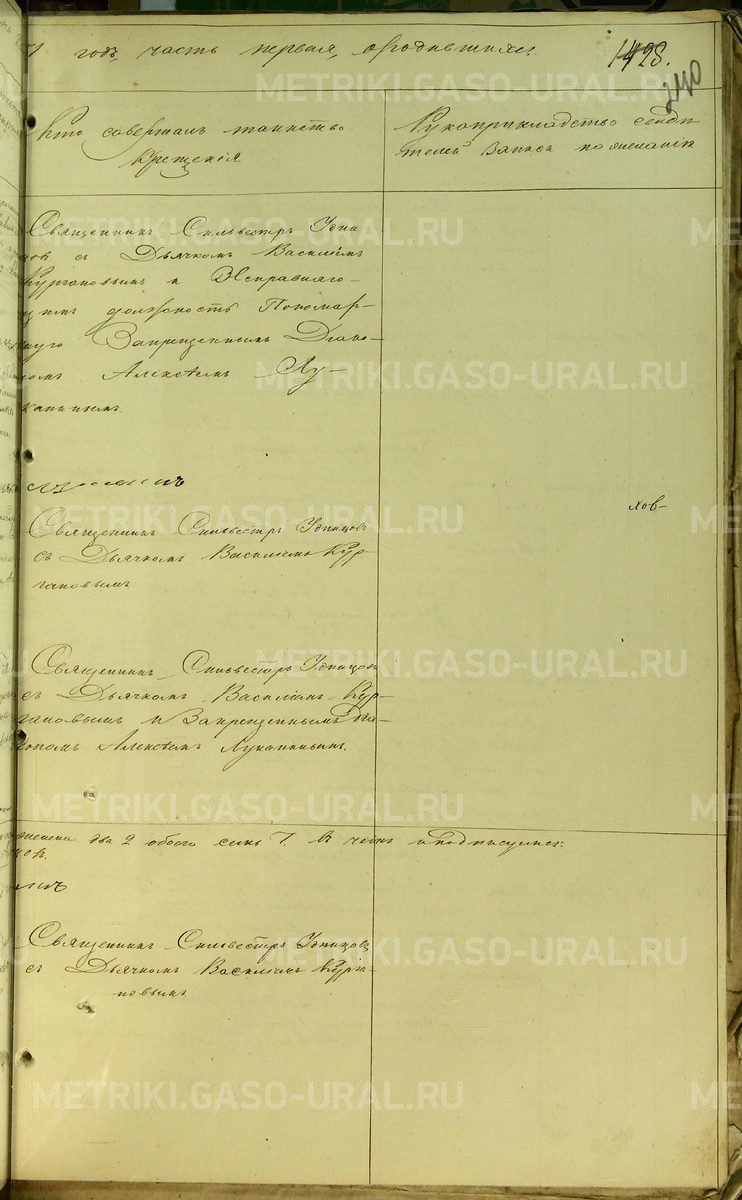 годъ, часть первая, о родившихся.
1428.
240
Кто совершалъ таинство
крещенiя.
Рукоприкладство свидѣ
телей записи по желанiю
Священникъ Сильвестръ Удин
цов съ Дьячкомъ Василiемъ
Кургановымъ и Исправляю
щимъ должность Пономар-
скую Запрещеннымъ Дiако-
номъ Алексѣемъ Лу-
канинымъ.
Священникъ Сильвестръ Удинцовъ
съ Дьячкомъ Василiемъ Кур-
гановымъ
лов-
Священникъ Сильвестръ Удинцовъ
съ Дьячкомъ Василiемъ Кур-
гановымъ и Запрещеннымъ Дiа-
кономъ Алексѣемъ Луканинымъ.
два 2 обоего пола 7. въ чемъ и подписуемся:
Священникъ Сильвестръ Удинцовъ
съ Дьячкомъ Василiемъ Курга-
новымъ
METRIKI.GASO-URAL.RU